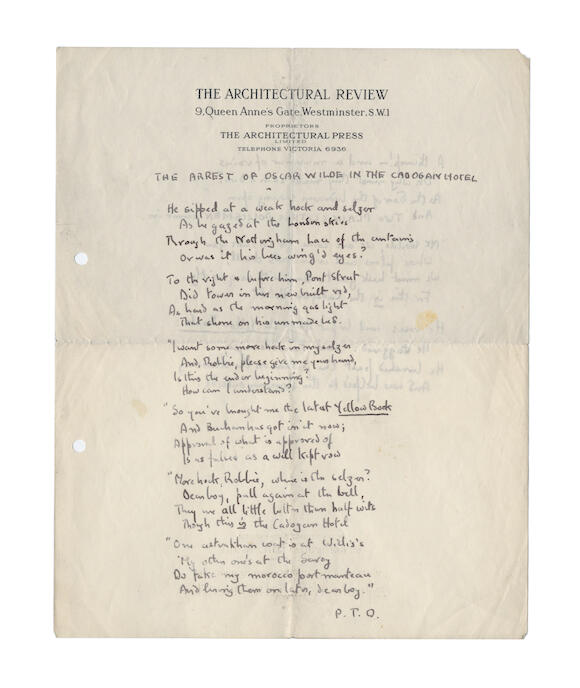 THE ARCHITECTURAL REVIEW
9, Queen Anne's Gate, Westminster, S.W.1
PROPRIETORS
THE ARCHITECTURAL PRESS
LIMITED
TELEPHONE VICTORIA 6936
THE ARREST OF OSCAR WILDE IN THE CADOGAN HOTEL
He sipped at a weak hock and selzer
As he gazed at the London skies
Through the Nottingham lace of the curtains
Or was it his bees wing'd eyes?
To the right & before him, Pont Street
Did tower in her new built red,
As hard as the morning gas light
That shone on his unmade bed.
"I want some more hock in my selzer
And, Robbie, please give me your hand,
Is this the end or beginning?
How can I understand?
"So you've brought me the latest Yellow Book
And Buchan has got in it now;
Approval of what is approved of
Is as false as a well kept vow
"More hock, Robbie, where is the selzer?
Dear boy, pull again at the bell,
They are all little better than half wits
Though this is the Cadogan Hotel
"One astrakhan coat is at Willis's
My other one's at the Savoy
Do take my morocco portmanteau
And bring them on later, dear boy."
P.T.O.